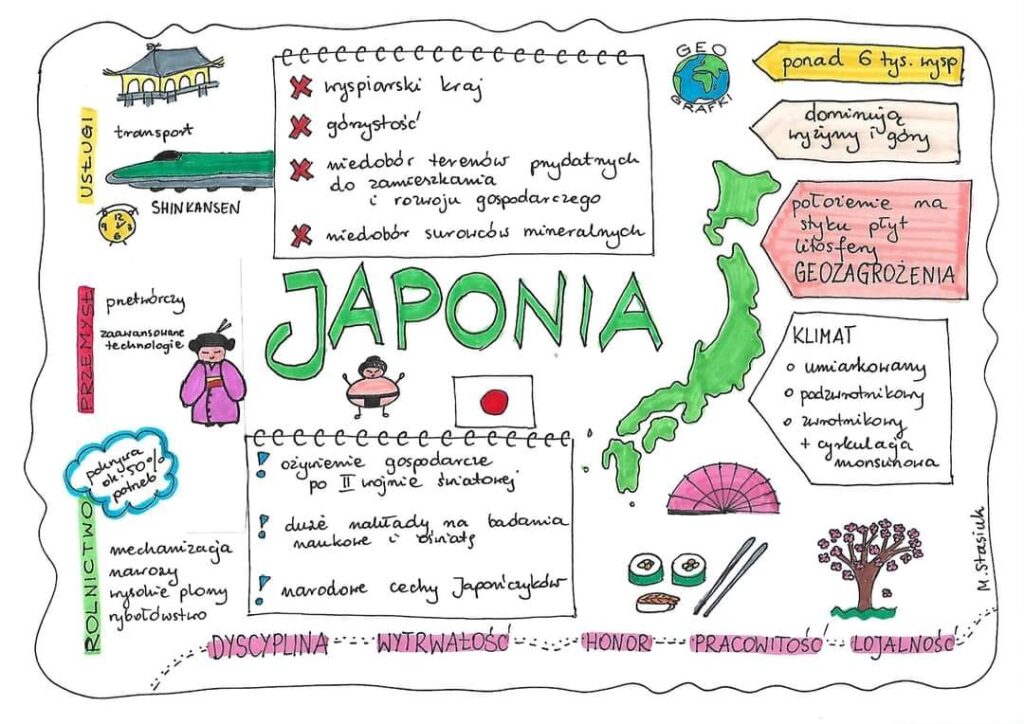 USŁUGI
transport
SHINKANSEN
12
3
6
9
wyspiarski kraj
górzystość
niedobór terenów przydatnych
do zamieszkania
i rozwoju gospodarczego
niedobór surowców mineralnych
GEO
GRAFKI
ponad 6 tys. wysp
dominują
wyżyny i góry
położenie na
styku płyt
litosfery
GEOZAGROŻENIA
JAPONIA
PRZEMYSŁ
przetwórczy
zaawansowane
technologie
KLIMAT
umiarkowany
podzwrotnikowy
zwrotnikowy
+ cyrkulacja
monsunowa
pokrywa
ok. 50%
potrzeb
ROLNICTWO
mechanizacja
nawozy
wysokie plony
rybołówstwo
! ożywienie gospodarcze
po II wojnie światowej
! duże nakłady na badania
naukowe i oświatę
! narodowe cechy Japończyków
M. Stasiuk
DYSCYPLINA WYTRWAŁOŚĆ HONOR PRACOWITOŚĆ LOJALNOŚĆ